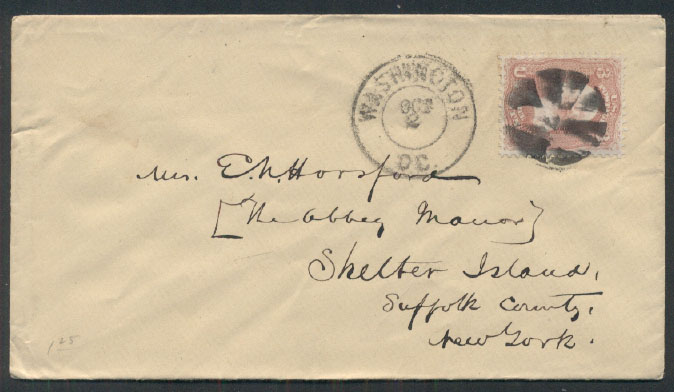 WASHINGTON
OCT
2
D.C.
U 3
Mrs. E. N. Horsford
[The Abbey Manor]
Shelter Island,
Suffolk County,
New York.
125